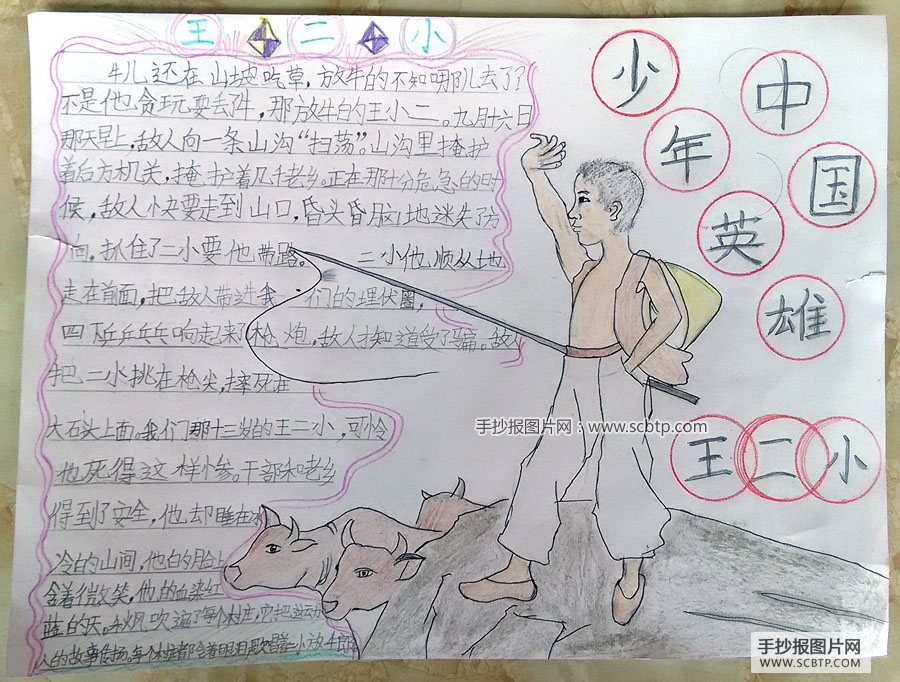 王二小
牛儿还在山坡吃草，放牛的不知哪儿去了？
不是他贪玩耍去牛，那放牛的王小二。九月十六日
那天早上，敌人向一条山沟“扫荡”。山沟里掩护
着后方机关，掩护着几千老乡。正在那十分危急的时
候，敌人快要走到山口，昏头昏脑地迷失了方
向，抓住了二小要他带路。二小他顺从地
走在前面，把敌人带进我们的埋伏圈，
四下乒乒乓乓响起来了枪炮，敌人才知道受了骗。敌人
把二小挑在枪尖，摔死在
大石头上面。我们那十三岁的王二小，可怜
他死得这样惨。干部和老乡
得到了安全，他却睡在冰
冷的山间，他的脸上
含着微笑，他的血染红
蓝的天。秋风吹遍了每个村庄，它把这动
人的故事传扬。每个村庄都含着眼泪歌唱着二小放牛郎
中国
少年英雄
王二小
手抄报图片网：www.scbtp.com
手抄报图片网
WWW.SCBTP.COM